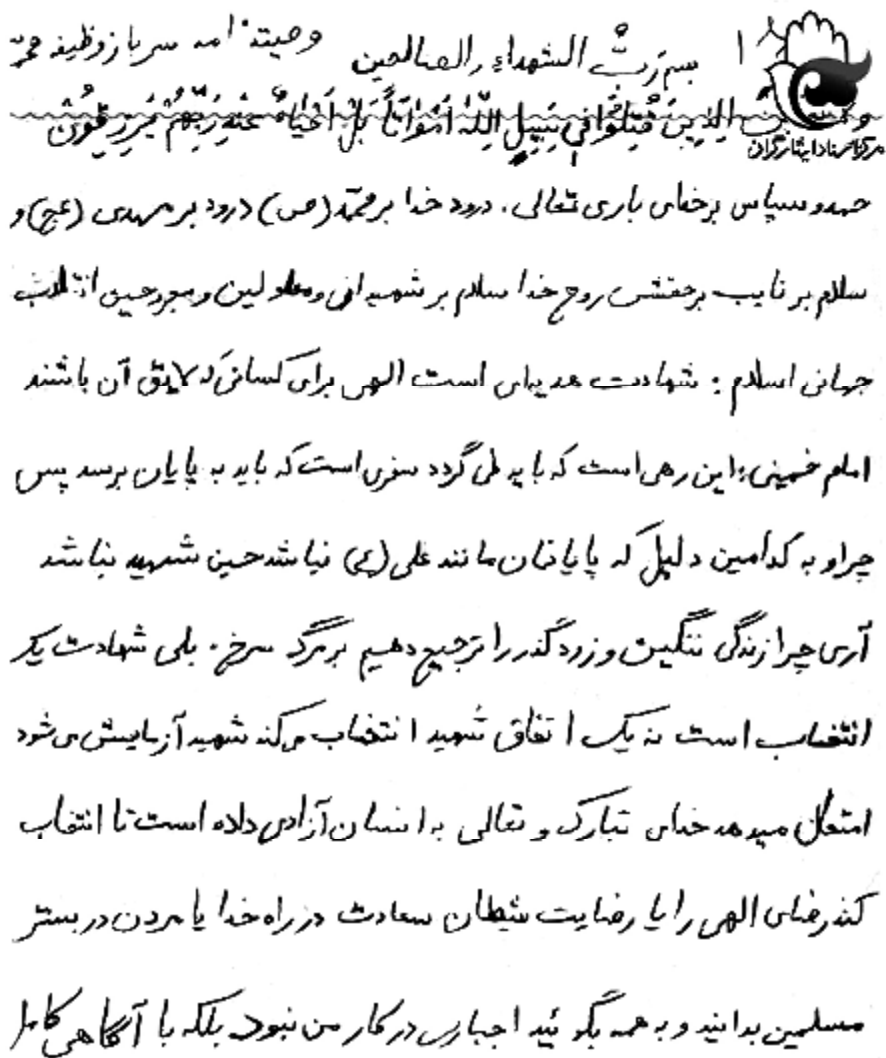 ۱ بسم رب الشهداء والصالحین وصیتنامه سرباز وظیفه
الذین قتلوا فی سبیل الله امواتاً بل احیاءٌ عند ربهم یرزقون
مرکز اسناد ایثارگران
حمد و سپاس بر خدای باری تعالی. درود خدا بر محمد (ص) درود بر مهدی (عج) و
سلام بر نایب برحقش روح خدا سلام بر شهیدانی و معلولین و مجروحین انقلاب
جهانی اسلام : شهادت هدیه‌ای است الهی برای کسانی که لایق آن باشند
امام خمینی: این رهی است که باید طی گردد سفری است که باید به پایان برسد پس
چرا و به کدامین دلیل که پایانمان مانند علی (ع) نباشد حسین شهید نباشد
آری چرا زندگی ننگین و زودگذر را ترجیح دهیم بر مرگ سرخ. بلی شهادت یک
انتخاب است نه یک اتفاق شهید انتخاب میکند شهید آزمایش می‌شود
امتحان میدهد خدای تبارک و تعالی به انسان آزادی داده است تا انتخاب
کند رضای الهی را یا رضایت شیطان سعادت در راه خدا یا مردن در بستر
مسلمین بدانید و به همه بگوئید اجباری در کار من نبود بلکه با آگاهی کامل